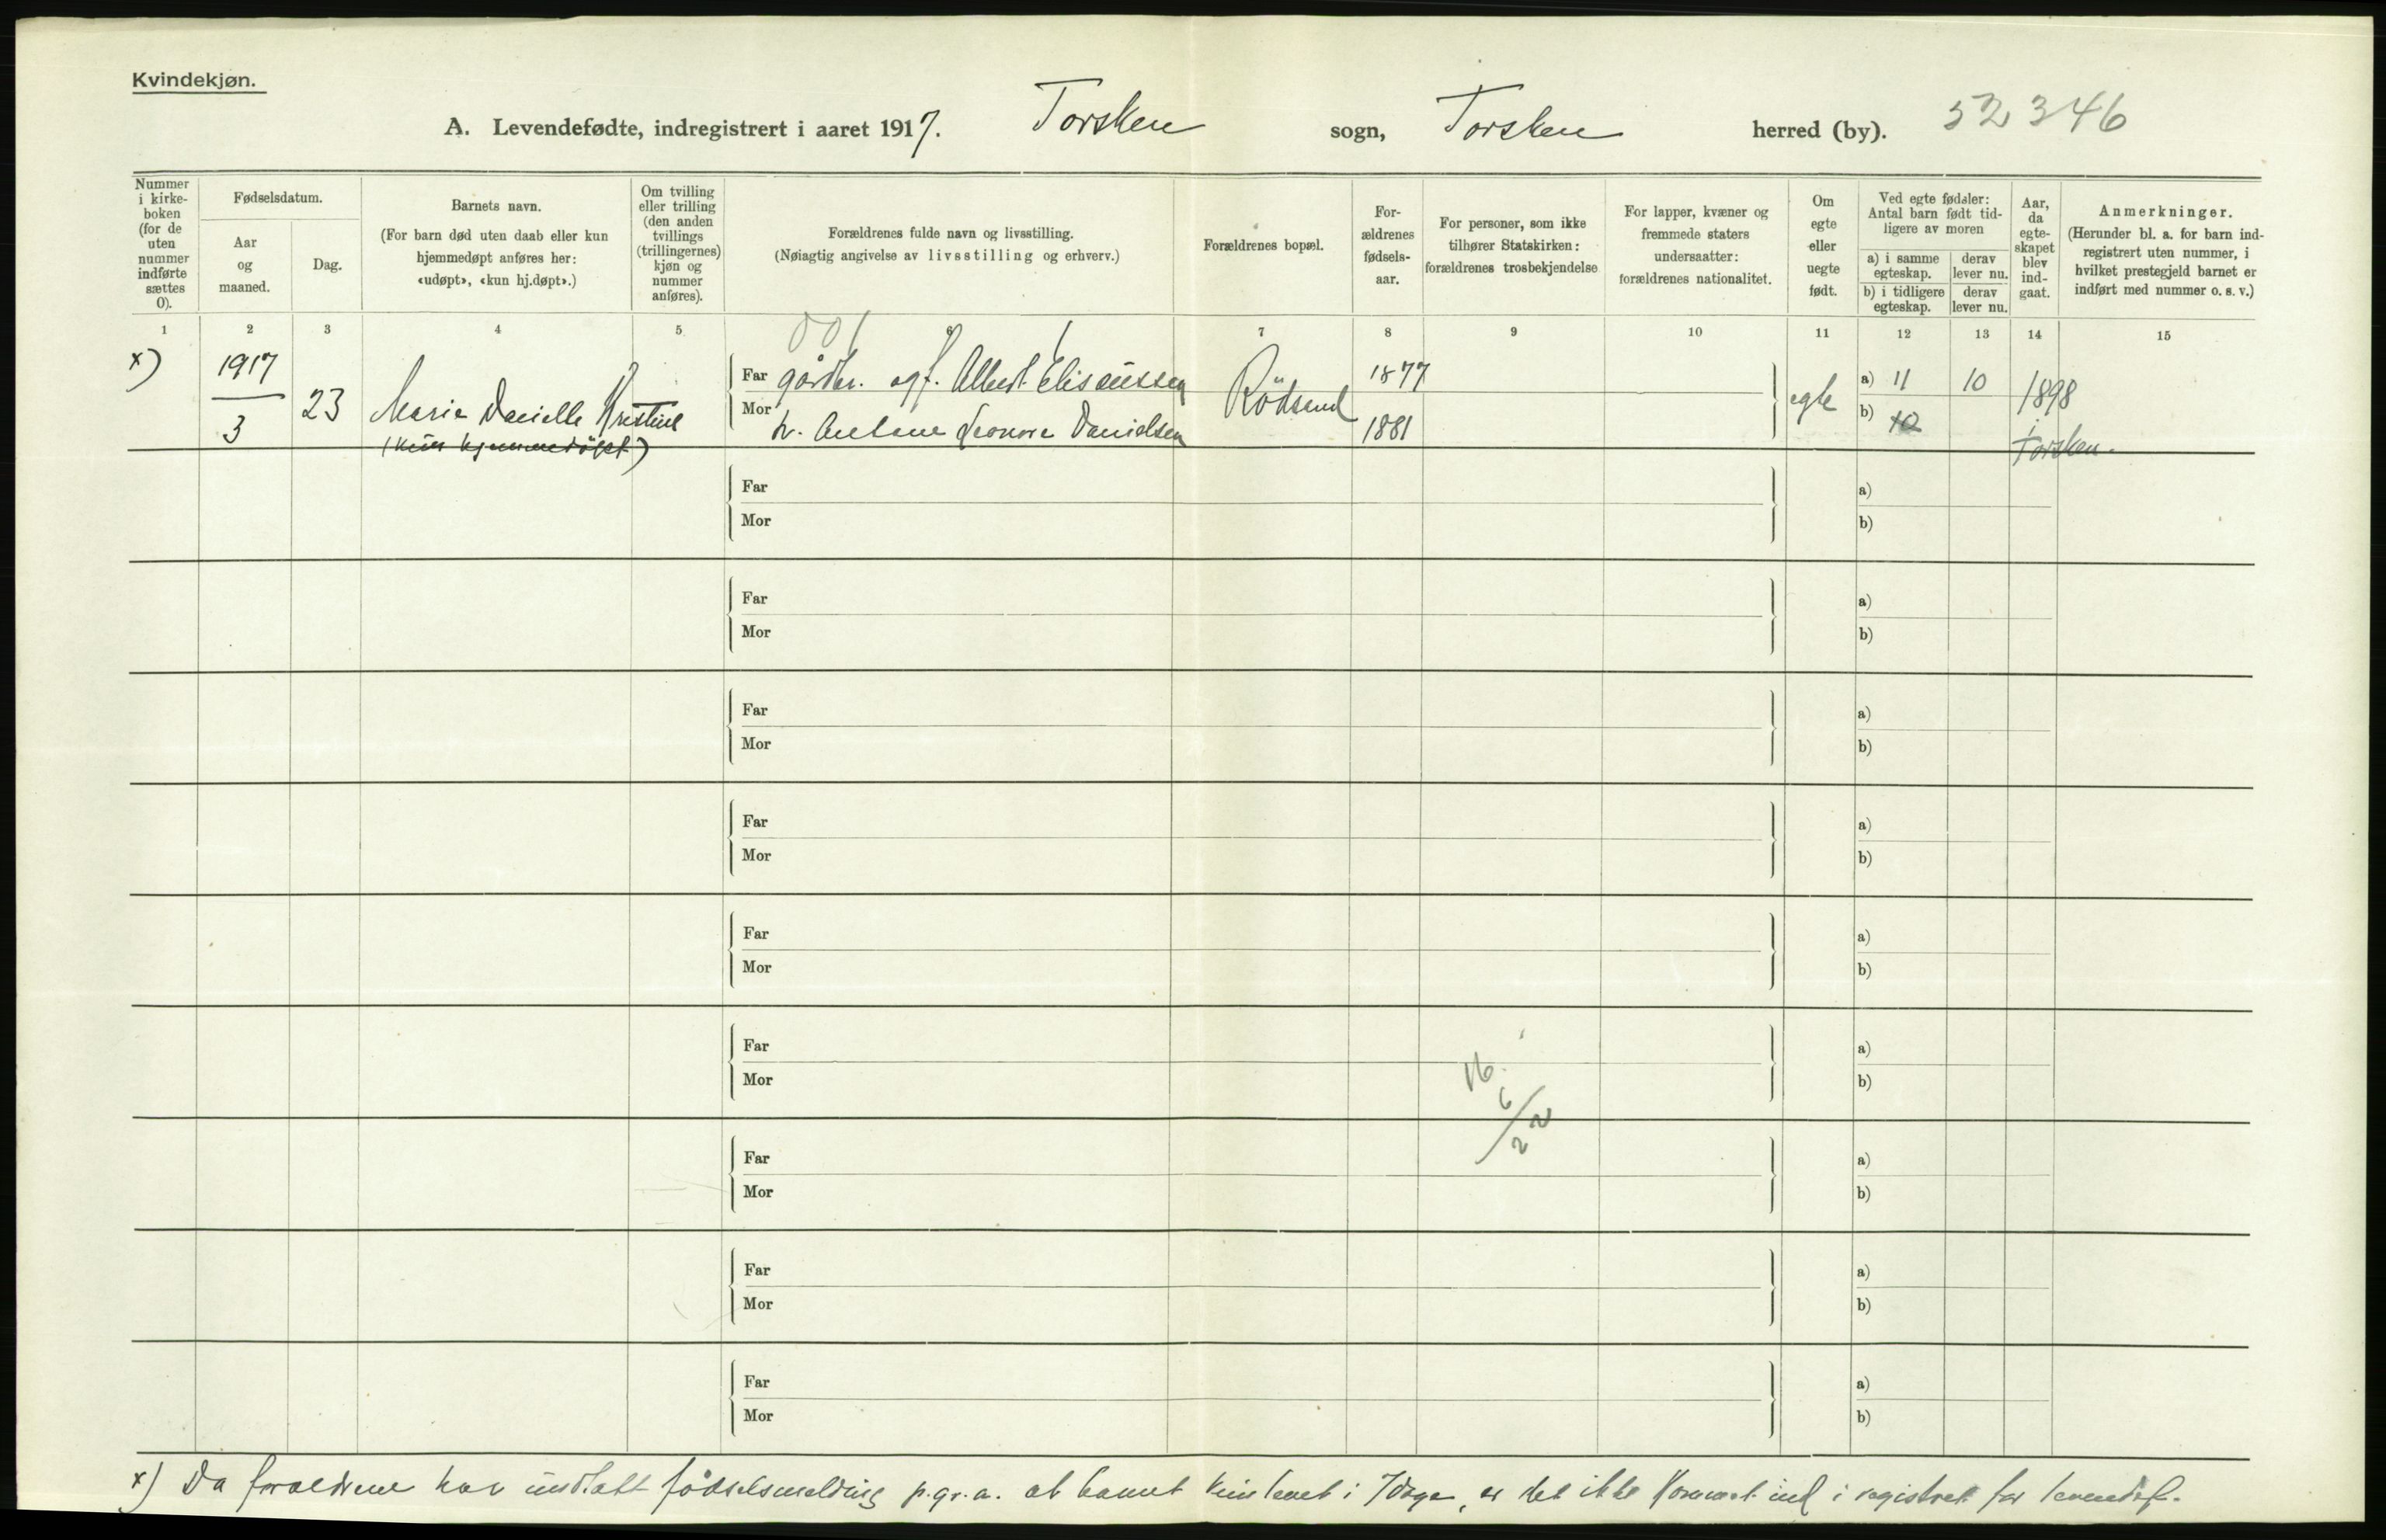 Kvindekjøn.
A. Levendefødte, indregistrert i aaret 1917. Torsken sogn, Torsken herred (by). 52 346
Nummer i kirkeboken (for de uten nummer indførte sættes 0).
Fødselsdatum.
Aar og maaned.
Dag.
Barnets navn.
(For barn død uten daab eller kun hjemmedøpt anføres her: «udøpt», «kun hj.døpt».)
Om tvilling eller trilling (den anden tvillings (trillingernes) kjøn og nummer anføres).
Forældrenes fulde navn og livsstilling.
(Nøiagtig angivelse av livsstilling og erhverv.)
Forældrenes bopæl.
Forældrenes fødselsaar.
For personer, som ikke tilhører Statskirken: forældrenes trosbekjendelse
For lapper, kvæner og fremmede staters undersaatter: forældrenes nationalitet.
Om egte eller uegte født.
Ved egte fødsler: Antal barn født tidligere av moren
a) i samme egteskap. derav lever nu.
b) i tidligere egteskap. derav lever nu.
Aar, da egteskapet blev indgaat.
Anmerkninger.
(Herunder bl. a. for barn indregistrert uten nummer, i hvilket prestegjeld barnet er indført med nummer o. s. v.)
1 2 3 4 5 6 7 8 9 10 11 12 13 14 15
001
x) 1917 3 23 Marie Danielle Kristine
(kun hjemmedöpt)
Far gårdbr. og f. Albert Elisæussen Rödsand 1877 egte a) 11 10 1898
Mor h. Antane Leonore Danielsen 1881 b) 10 Torsken.
Far a)
Mor b)
Far a)
Mor b)
Far a)
Mor b)
Far a)
Mor b)
Far a)
Mor b)
Far a)
Mor b)
16. 6/22
Far a)
Mor b)
Far a)
Mor b)
Far a)
Mor b)
x) Da forældrene har undlatt födselsmelding p.gr.a. at barnet kun levet i 7 dage, er det ikke kommet ind i registret for levendef.